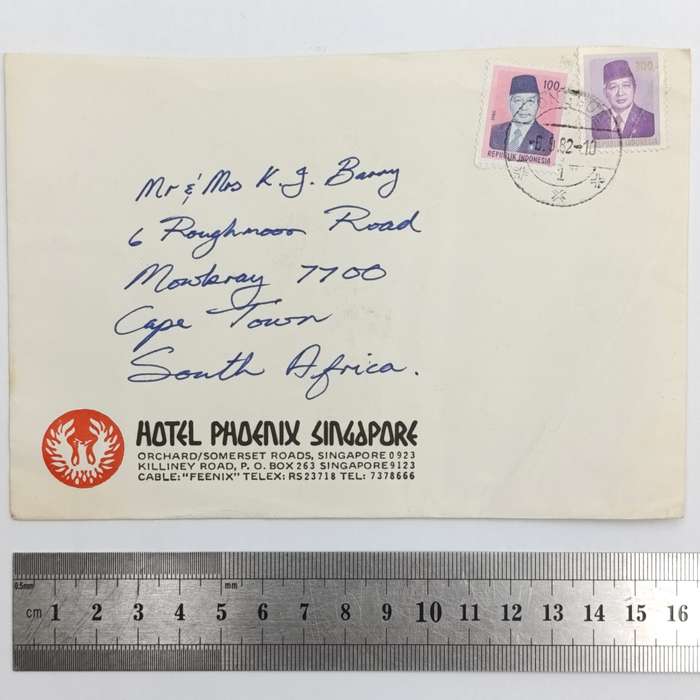 100.-
REPUBLIK INDONESIA
REPUBLIK INDONESIA
82-10
1
Mr & Mrs K. J. Barry
6 Roughmoor Road
Mowbray 7700
Cape Town
South Africa.
HOTEL PHOENIX SINGAPORE
ORCHARD/SOMERSET ROADS, SINGAPORE 0923
KILLINEY ROAD, P. O. BOX 263 SINGAPORE 9123
CABLE: "FEENIX" TELEX: RS 23718 TEL: 7378666
0.5mm
mm
cm 1 2 3 4 5 6 7 8 9 10 11 12 13 14 15 16